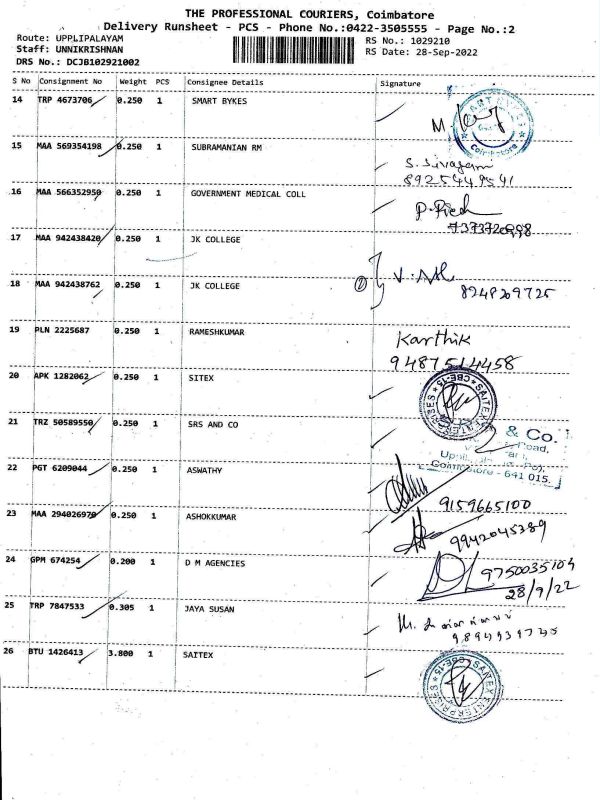 THE PROFESSIONAL COURIERS, Coimbatore
Delivery Runsheet - PCS - Phone No.:0422-3505555 - Page No.:2
Route: UPPLIPALAYAM RS No.: 1029210
Staff: UNNIKRISHNAN RS Date: 28-Sep-2022
DRS No.: DCJB102921002
S No Consignment No Weight PCS Consignee Details Signature
14 TRP 4673706 0.250 1 SMART BYKES
Coimbatore
15 MAA 569354198 0.250 1 SUBRAMANIAN RM
S. Sivagami
8925449541
16 MAA 566352950 0.250 1 GOVERNMENT MEDICAL COLL
7373720998
17 MAA 942438420 0.250 1 JK COLLEGE
18 MAA 942438762 0.250 1 JK COLLEGE
8248209725
19 PLN 2225687 0.250 1 RAMESHKUMAR Karthik
9487514458
20 APK 1282062 0.250 1 SITEX
SAITEX ENTERPRISES CBE-15
21 TRZ 50589550 0.250 1 SRS AND CO
& Co.
Road,
Coimbatore - 641 015.
22 PGT 6209044 0.250 1 ASWATHY
9159665100
23 MAA 294026970 0.250 1 ASHOKKUMAR
9942045389
24 GPM 674254 0.200 1 D M AGENCIES
9750035104
28/9/22
25 TRP 7847533 0.305 1 JAYA SUSAN
26 BTU 1426413 3.800 1 SAITEX
SAITEX ENTERPRISES CBE-15